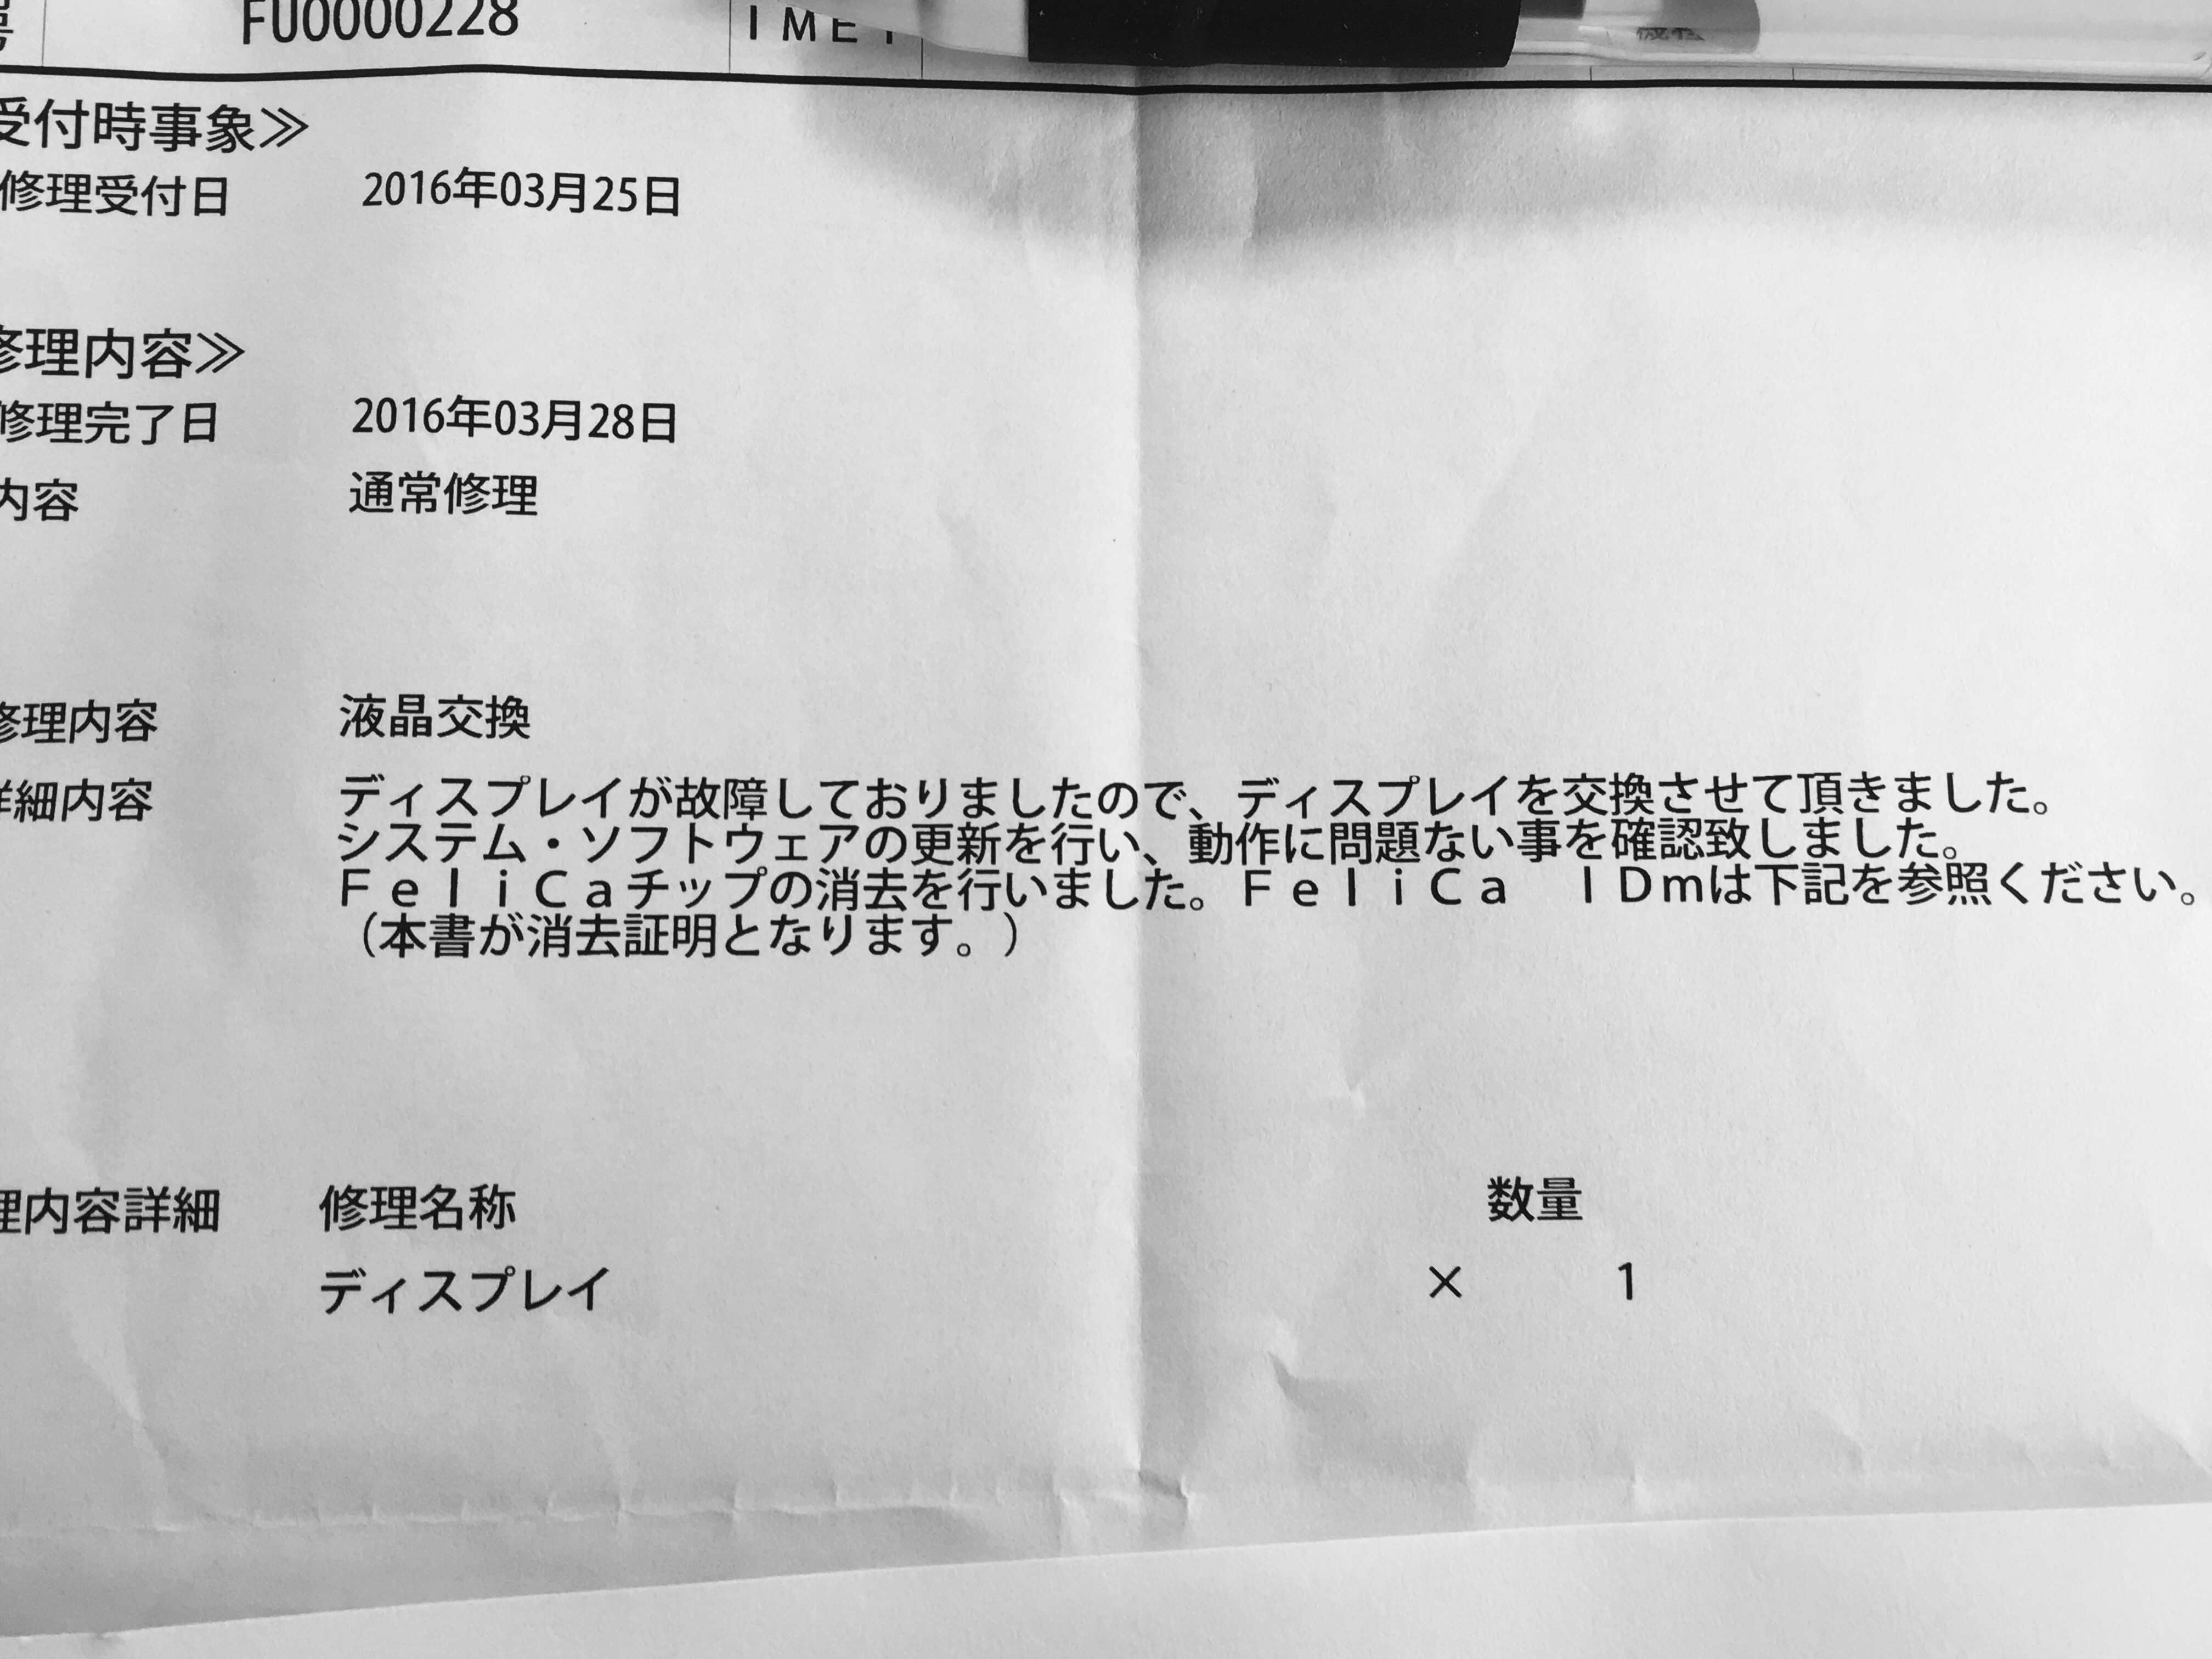 号 FU0000228 IMEI
受付時事象≫
修理受付日 2016年03月25日
修理内容≫
修理完了日 2016年03月28日
内容 通常修理
修理内容 液晶交換
詳細内容 ディスプレイが故障しておりましたので、ディスプレイを交換させて頂きました。
システム・ソフトウェアの更新を行い、動作に問題ない事を確認致しました。
ＦｅｌｉＣａチップの消去を行いました。ＦｅｌｉＣａ　ＩＤｍは下記を参照ください。
（本書が消去証明となります。）
理内容詳細 修理名称 数量
ディスプレイ × 1